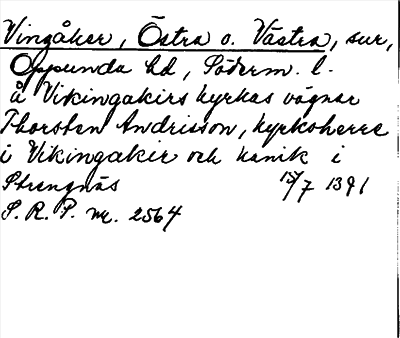 Vingåker, Östra o. Västra, sur,
Oppunda hd, Söderm. l.
å Vikingakirs kyrkas vägnar
Thorsten Andrisson, kyrkoherre
i Vikingakir och kanik i
Strengnäs 15/7 1391
S. R. P. nr. 2564